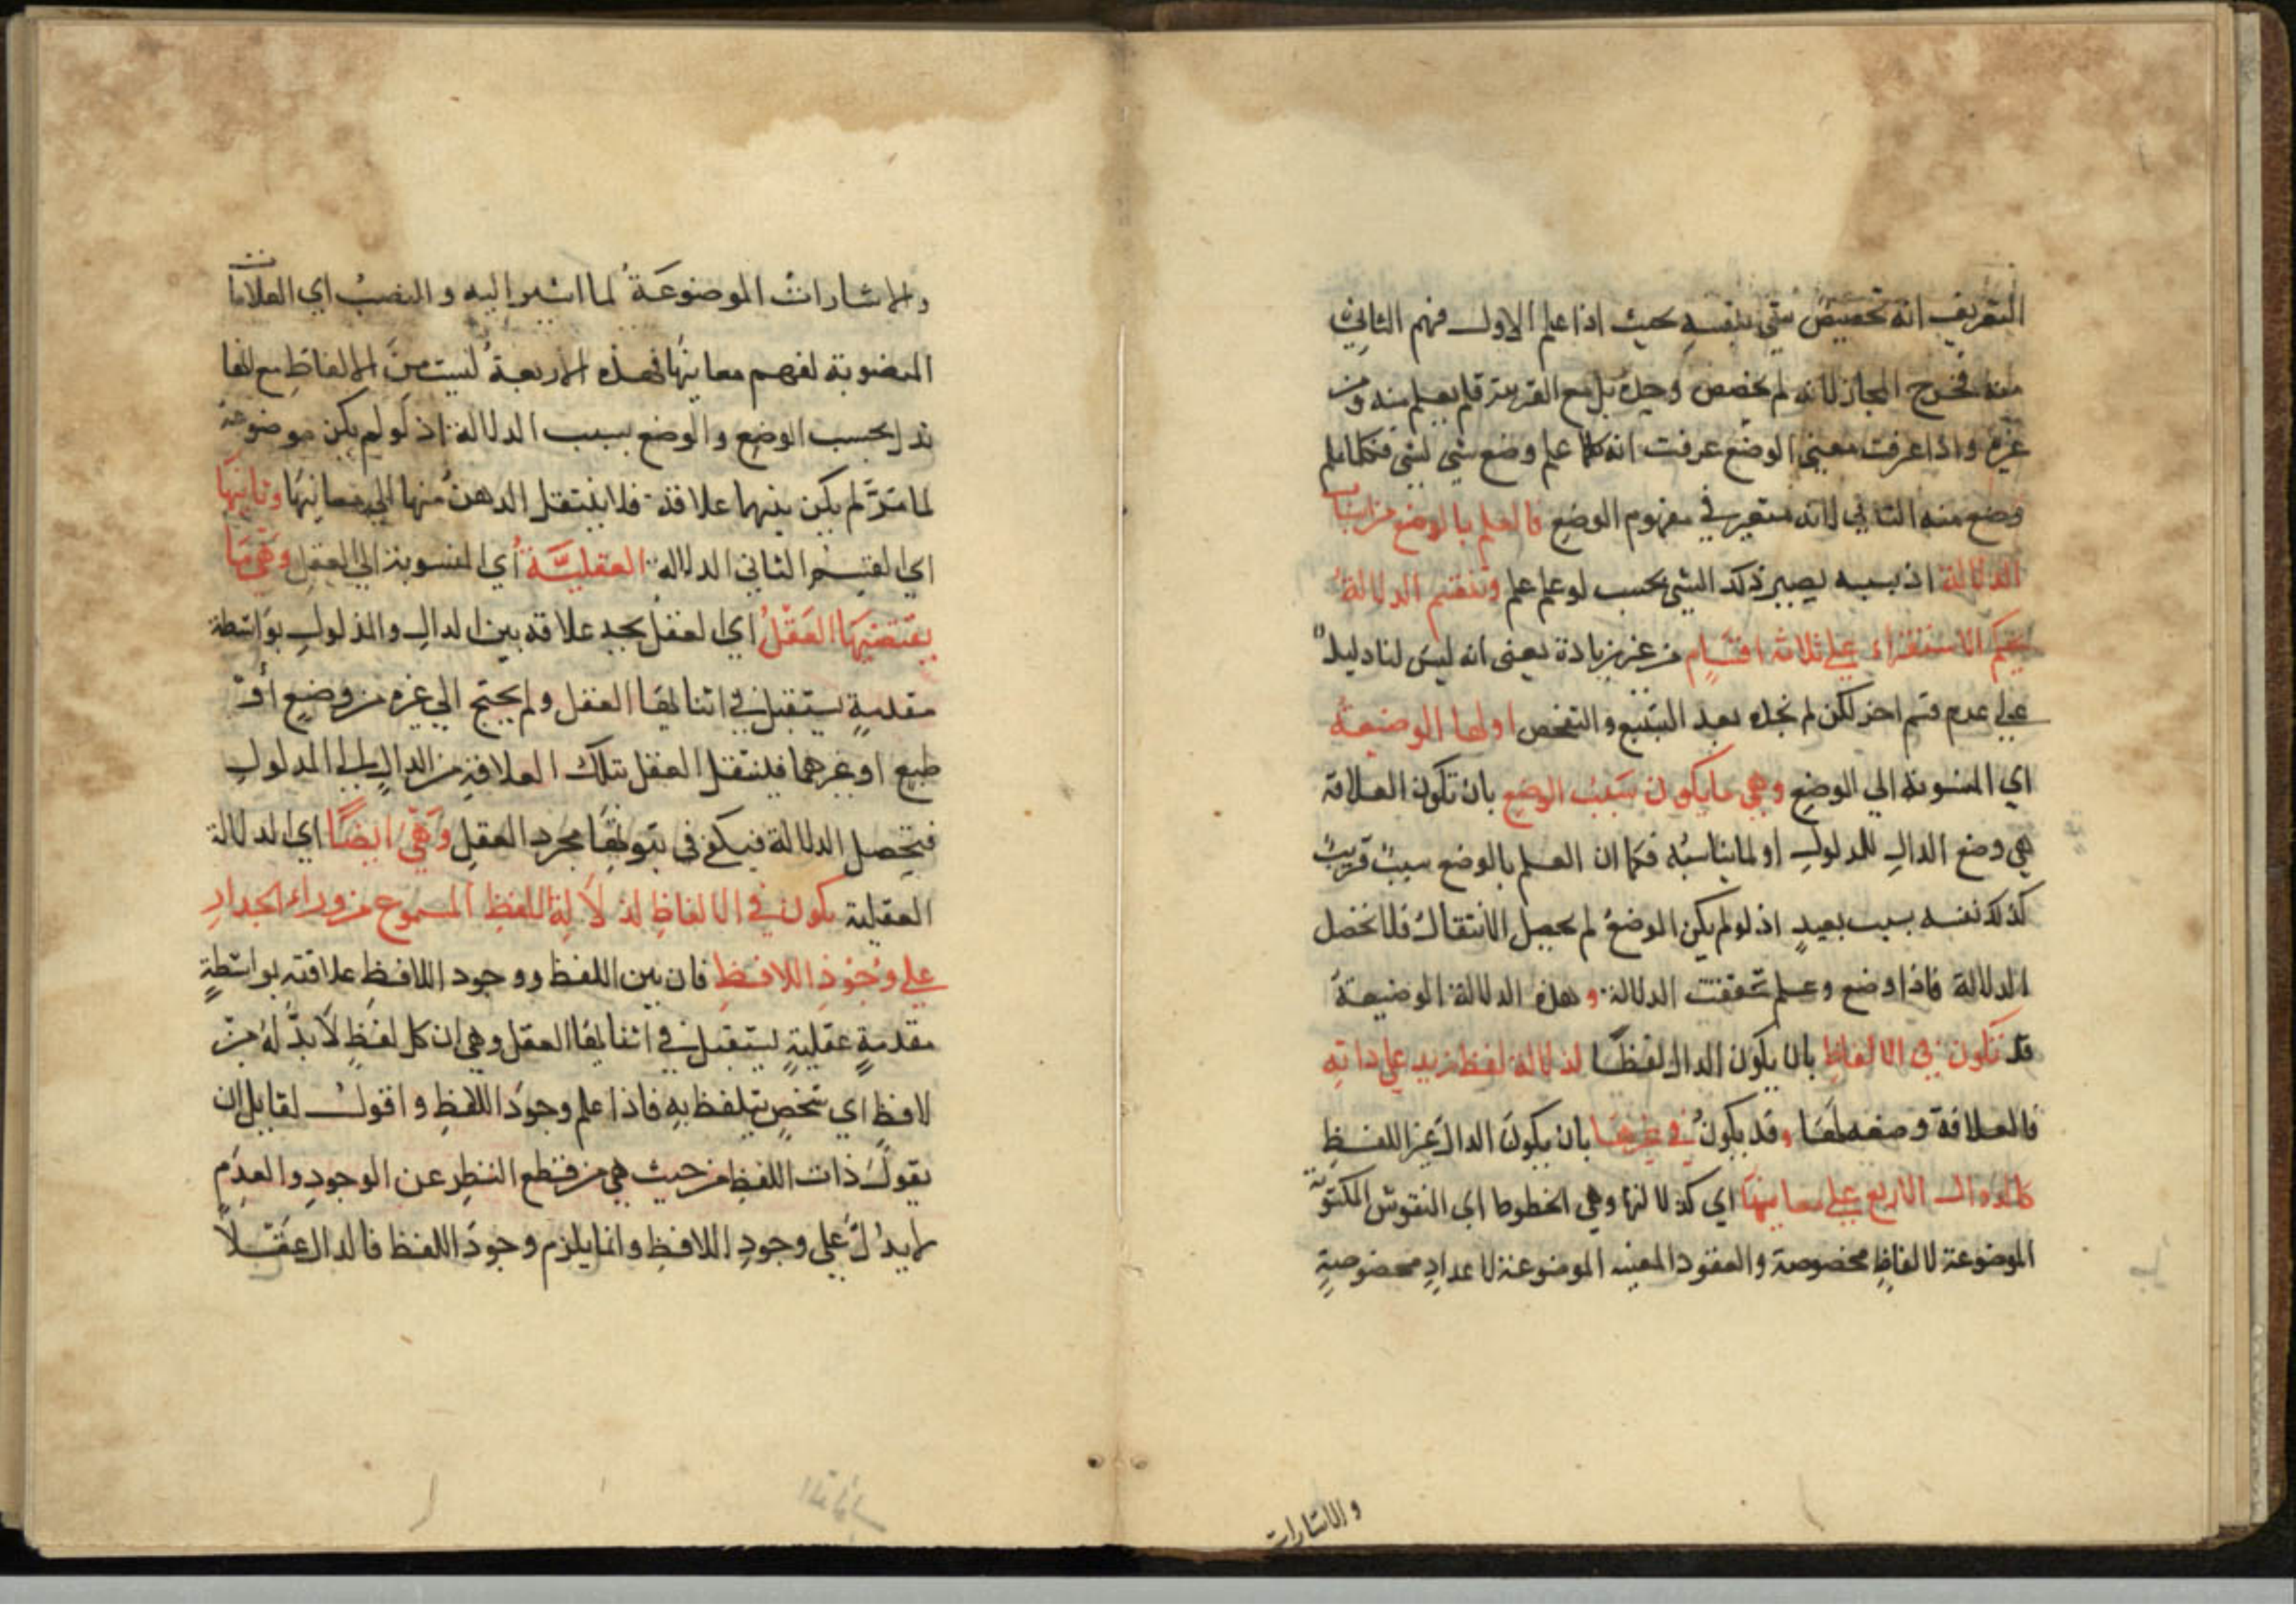 التعريف انه تخصيص شي بنفسه بحيث اذا علم الاول فهم الثاني
منه فخرج المجاز لانه لم يخصص وحده بل مع القرينة فلم يعلم منه من
غيره واذا عرفت معنى الوضع عرفت انه كلما علم وضع شي لشي فكلما علم
وضع منه الثاني لانه معتبر في مفهوم الوضع فالعلم بالوضع من اسباب
الدلالة اذ بسببه يصير ذلك الشي بحسب لو علم علم وتنقسم الدلالة
بحكم الاستقراء على ثلاثة اقسام من غير زيادة يعني انه ليس لنا دليلا
على عدم قسم اخر لكن لم نجده بعد التتبع والتفحص اولها الوضعية
اي المنسوبة الي الوضع وهي ما يكون بسبب الوضع بان تكون العلاقة
هي وضع الدال للمدلول او لما يناسبه فكما ان العلم بالوضع سبب قريب
كذلك نفسه سبب بعيد اذ لو لم يكن الوضع لم يحصل الانتقال فلا تحصل
الدلالة فاذا وضع وعلم تحققت الدلالة وهذه الدلالة الوضيعة
قد تكون في الالفاظ بان يكون الدال لفظا كدلالة لفظ زيد على ذاته
فالعلاقة وضعه لها وقد يكون في غيرها بان يكون الدال غير اللفظ
كالدوال الاربع على معانيها اي كدلالتها وهي الخطوط اي النقوش المكتوبة
الموضوعة لالفاظ مخصوصة والعقود المعينه الموضوعة لاعداد مخصوصة
والاشارات
والاشارات الموضوعة لما اشير اليه والنصب اي العلامات
المنصوبة لفهم معانيها فهذه الاربعة ليست من الالفاظ مع انها
تدل بحسب الوضع والوضع بسبب الدلالة اذ لو لم يكن موضوعة
لما مر لم يكن بينهما علاقة فلا ينتقل الدهن منها الي معانيها وثانيها
اي القسم الثاني الدلالة العقلية اي المنسوبة الي العقل وهي ما
يقتضيها العقل اي العقل يجد علاقة بين الدال والمدلول بواسطة
مقدمة يستقبل في اثباتها العقل ولم يحتج الي غيره من وضع او
طبع او غيرهما فينتقل العقل بتلك العلاقة من الدال الى المدلول
فتحصل الدلالة فيكفي في ثبوتها مجرد العقل وهي ايضا اي الدلالة
العقلية يكون في الالفاظ كدلالة اللفظ المسموع من وراء الجدار
على وجود اللافظ فان بين اللفظ ووجود اللافظ علاقة بواسطة
مقدمة عقلية يستقبل في اثباتها العقل وهي ان كل لفظ لا بد له من
لافظ اي شخص يتلفظ به فاذا علم وجود اللفظ واقول لقايل ان
يقول ذات اللفظ من حيث هي من قطع النظر عن الوجود والعدم
لا يدل على وجود اللافظ وانما يلزم وجود اللفظ فالدال عقلا